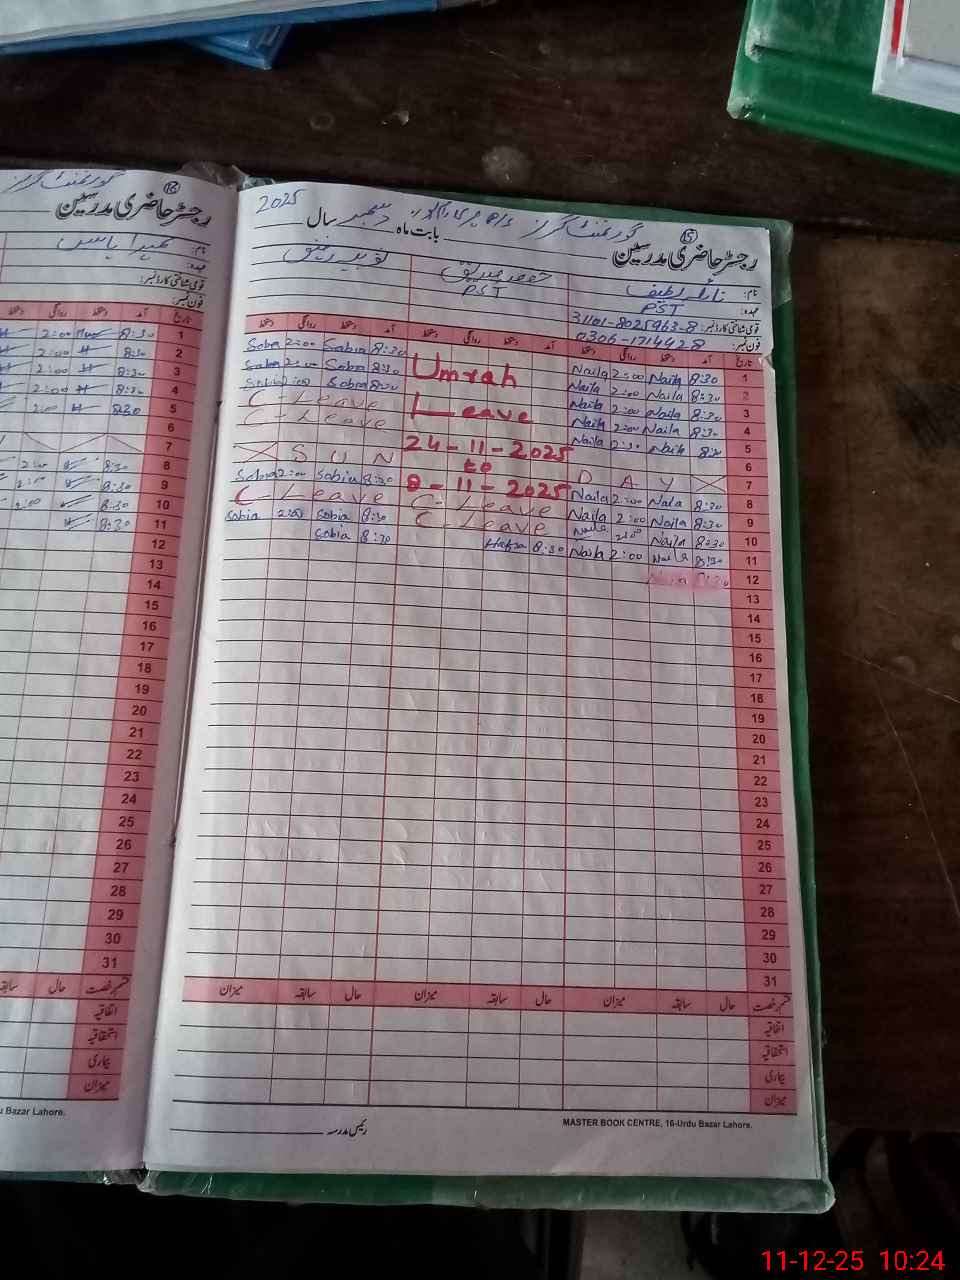 2025
گورنمنٹ گرلز
رجسٹر حاضری مدرسین
15
بابت ماہ دسمبر سال
نام: نائلہ لطیف
عہدہ: PST
PST
قومی شناختی کارڈ نمبر: 31101-8025963-8
فون نمبر: 0306-1714428
تاریخ آمد دستخط روانگی دستخط آمد دستخط روانگی دستخط آمد دستخط روانگی دستخط
1 8:30 Naila 2:00 Naila Umrah 8:30 Sobia 2:00 Sobia
2 8:30 Naila 2:00 Naila 8:30 Sobia 2:00 Sobia
3 8:30 Naila 2:00 Naila Leave 8:30 Sobia 2:00 Sobia
4 8:30 Naila 2:00 Naila C-Leave
5 Naila Naila 24-11-2025 C-Leave
6 to
7 SUN DAY
8 8:30 Naila 2:00 Naila 8-11-2025 8:30 Sobia 2:00 Sobia
9 8:30 Naila 2:00 Naila C-Leave C Leave
10 8:30 Naila 2:00 Naila C-Leave 8:30 Sobia 2:00 Sobia
11 8:30 Naila 2:00 Naila 8:30 Hafsa 8:30 Sobia
12
13
14
15
16
17
18
19
20
21
22
23
24
25
26
27
28
29
30
31
قسم رخصت حال سابقہ میزان حال سابقہ میزان حال سابقہ میزان
اتفاقیہ
استحقاقیہ
بیماری
میزان
رئیس مدرسہ
MASTER BOOK CENTRE, 16-Urdu Bazar Lahore.
16
رجسٹر حاضری مدرسین
گورنمنٹ گرلز
نام:
عہدہ:
قومی شناختی کارڈ نمبر:
فون نمبر:
تاریخ آمد دستخط روانگی دستخط
1 8:30 2:00
2 8:30 2:00
3 8:30 2:00
4 8:30 2:00
5 8:30 2:00
6
7
8 8:30 2:00
9 8:30
10 8:30
11 8:30
12
13
14
15
16
17
18
19
20
21
22
23
24
25
26
27
28
29
30
31
قسم رخصت حال سابقہ
اتفاقیہ
استحقاقیہ
بیماری
میزان
u Bazar Lahore.
11-12-25 10:24